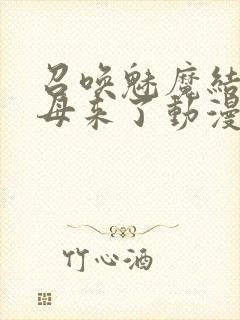 召喚魅魔結
母来了動漫
竹心酒